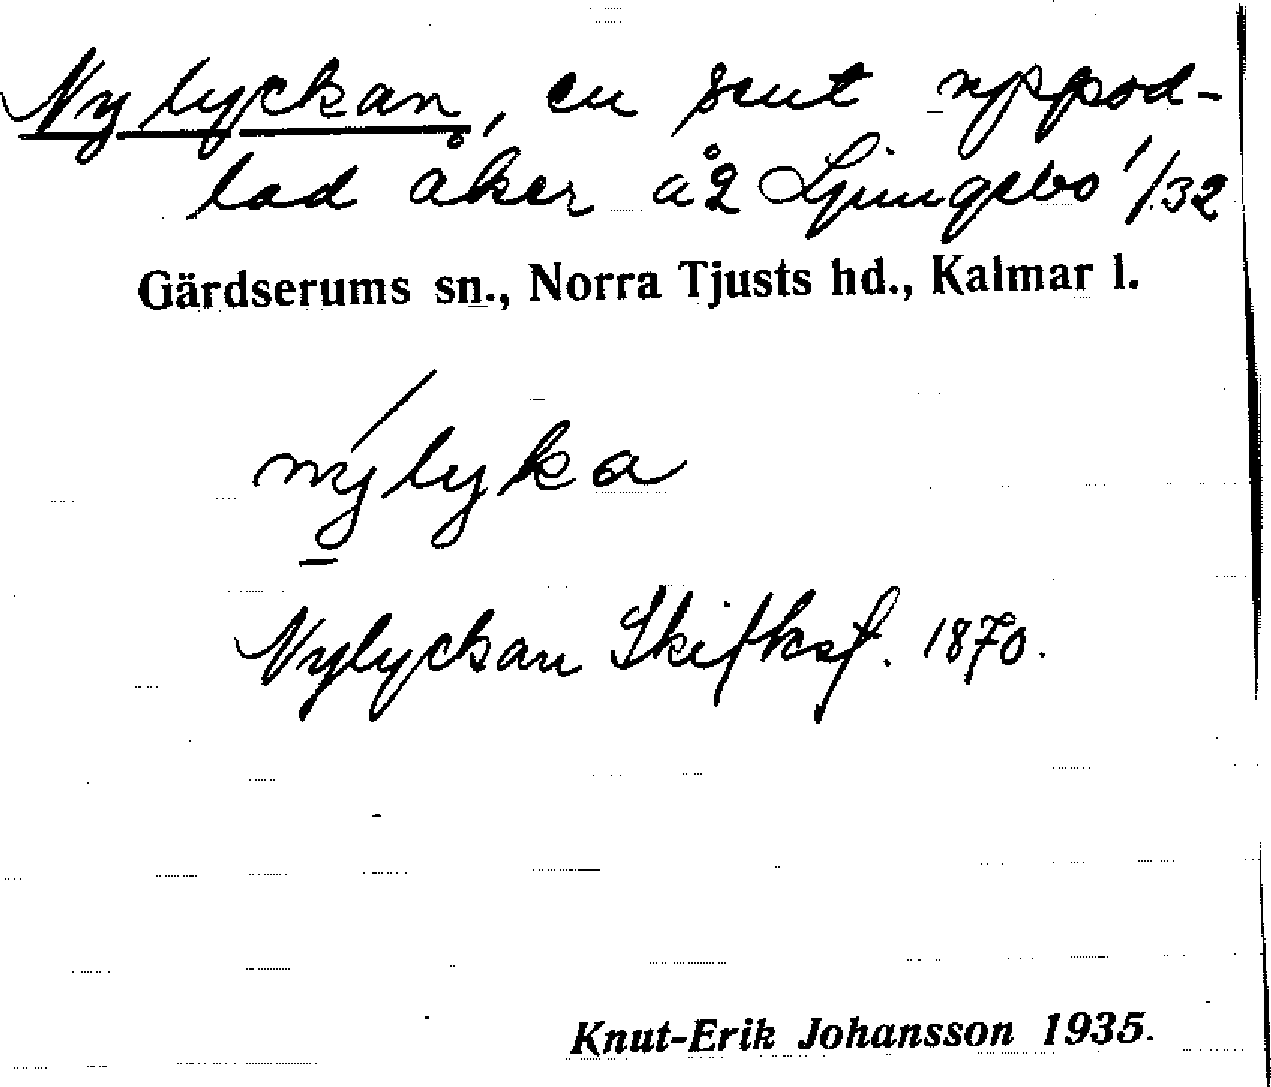 Nylyckan, en sent uppod-
lad åker å 2 Ljungsbo 1/32
Gärdserums sn., Norra Tjusts hd., Kalmar l.
nýlyka
Nylyckan Skifksf. 1870.
Knut-Erik Johansson 1935.